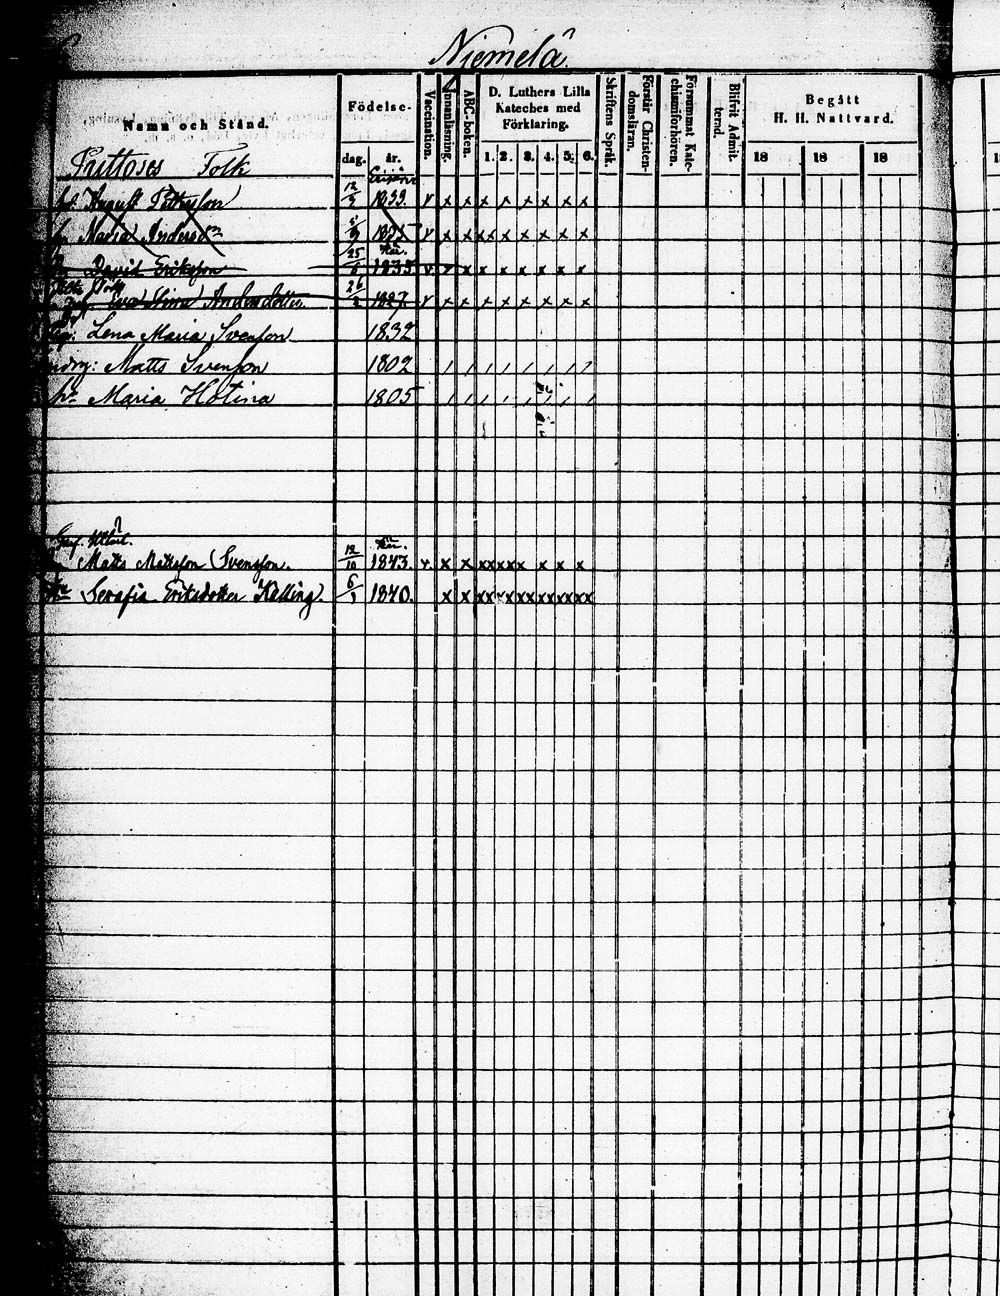 Niemelä
Namn och Stånd. Födelse- dag. år. Vaccination. Innanläsning. ABC-boken. D. Luthers Lilla Kateches med Förklaring. 1. 2. 3. 4. 5. 6. Skriftens Språk. Förstår Christendomsläran. Försummat Katechismiförhören. Blifvit Admitternd. Begått H. H. Nattvard. 18 18 18
Folk
August Pettersson 12/2 1833 v x x x x x x x x
Maria Andersdr v x x xx x x x x x
David Eriksson 25/6 1835 v v x x x x x x x
Eva Stina Andersdotter 26/2 1827 v x x x x x x x x
Lena Maria Svensson 1832
Matts Svensson 1802 / / / / / / / /
Maria Hotina 1805 / / / / / / / /
Matts Mattsson Svensson. 12/10 1843. v. x x xx xx x x x x
Serafia Eriksdotter Källing. 6/1 1840. x x xx xx xx xx xx xx